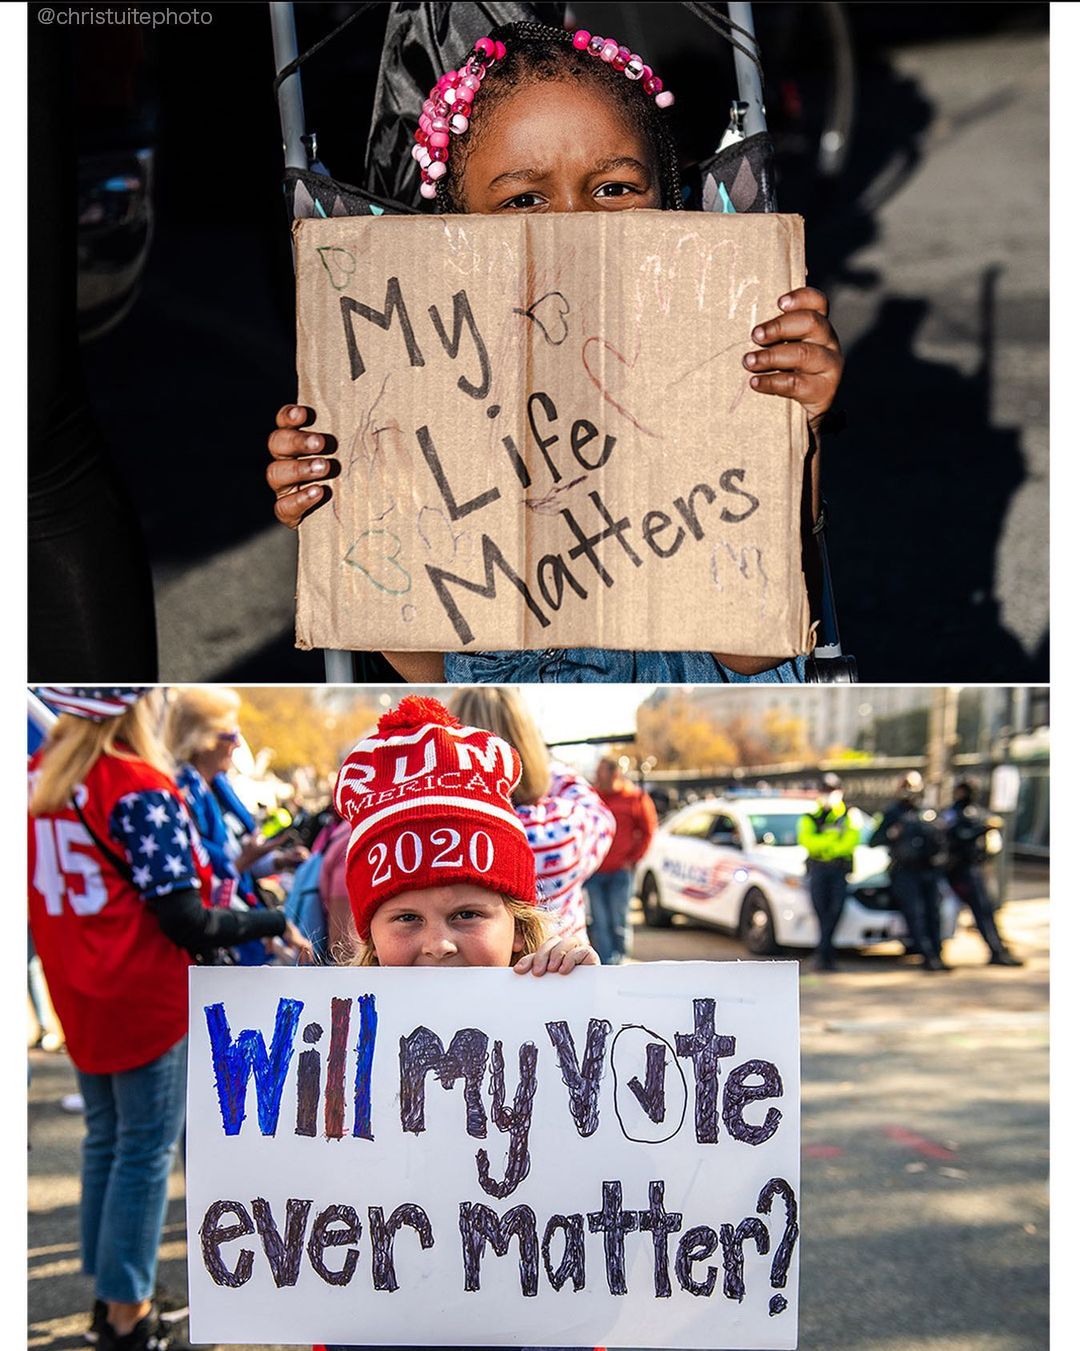 @christuitephoto
My
Life
Matters
RUM
MERICA
2020
45
POLICE
Will my vote
ever matter?